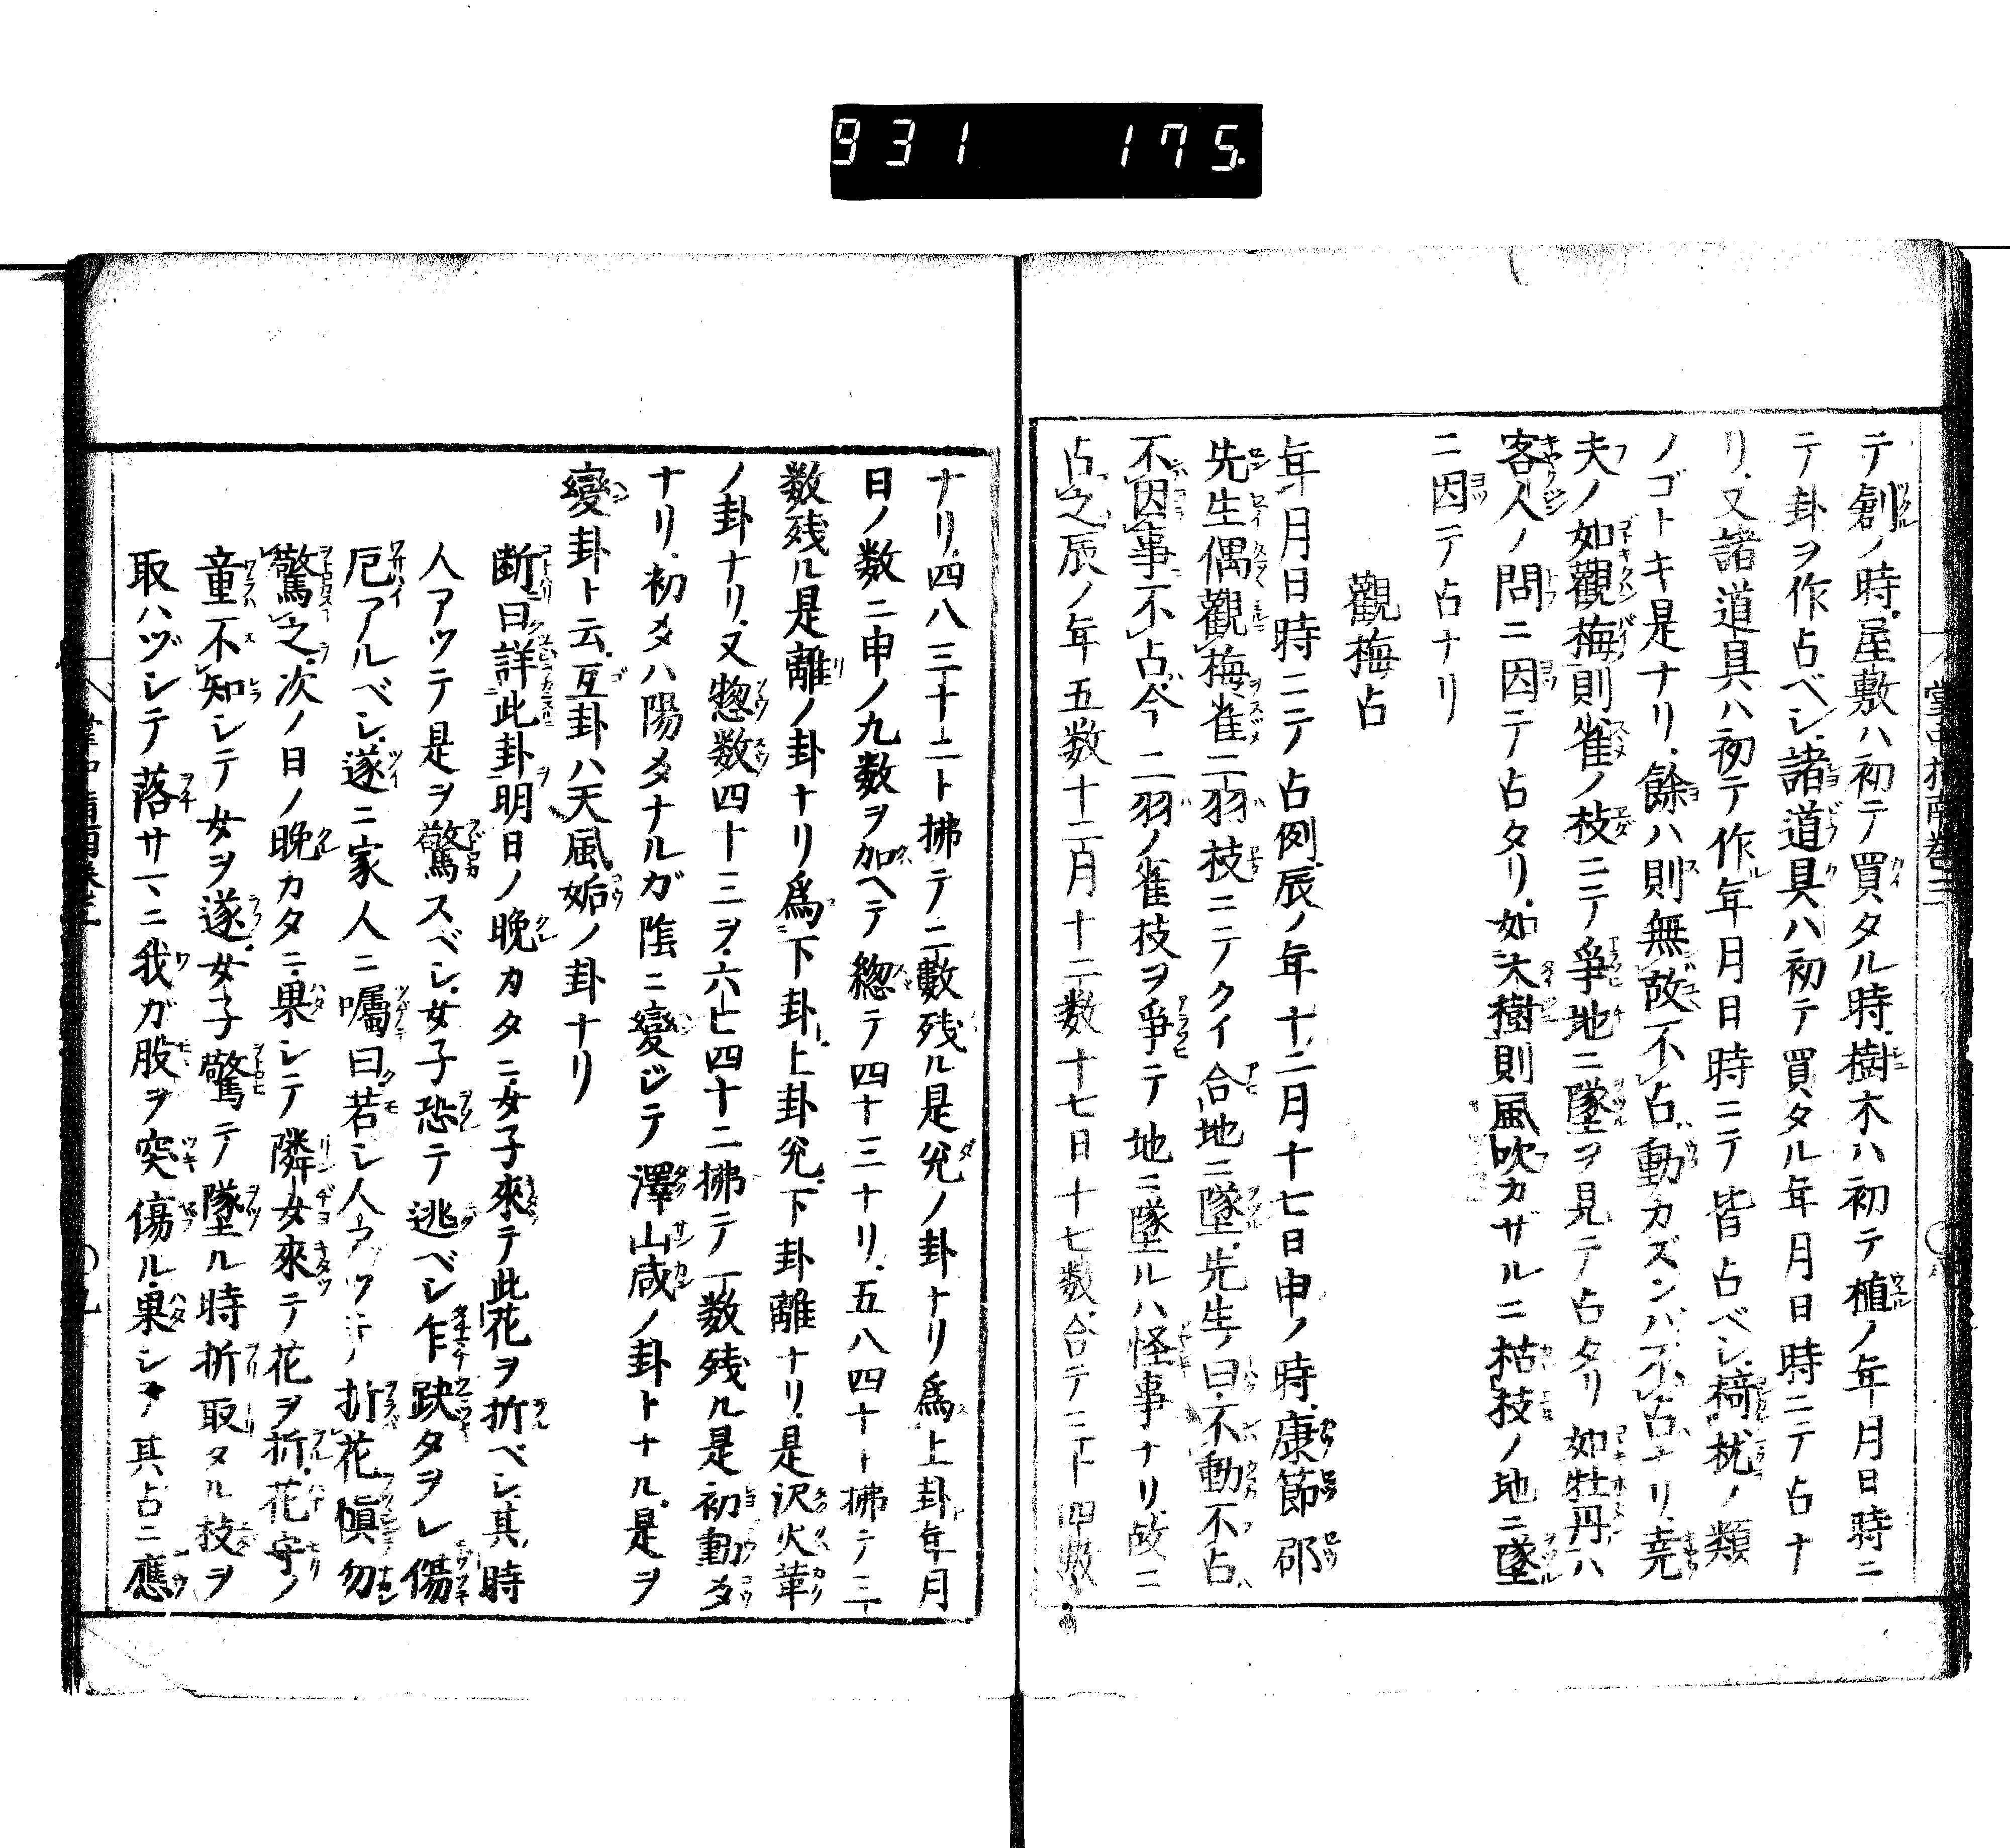 931 175.
テ創ノ時屋敷ハ初テ買タル時樹木ハ初テ植ノ年月日時ニ
テ卦ヲ作占ベシ諸道具ハ初テ買タル年月日時ニテ占ナ
リ又諸道具ハ初テ作年月日時ニテ皆占ベシ椅枕ノ類
ノゴトキ是ナリ餘ハ則無故不占動カズンバ不占ナリ堯
夫ノ如觀梅則雀ノ枝ニテ爭地ニ墜ヲ見テ占タリ如牡丹ハ
客人ノ問ニ因テ占タリ如大樹則風吹カザルニ枯枝ノ地ニ墜
ニ因テ占ナリ
觀梅占
年月日時ニテ占例辰ノ年十二月十七日申ノ時康節邵
先生偶觀梅雀二羽枝ニテクイ合地ニ墜先生ノ曰不動不占
不因事不占今二羽ノ雀枝ヲ爭テ地ニ墜ルハ怪事ナリ故ニ
占之辰ノ年五数十二月十二数十七日十七数合テ三十四数
ナリ四八三十二ト拂テ二數残ル是兌ノ卦ナリ爲上卦年月
日ノ数ニ申ノ九数ヲ加ヘテ緫テ四十三ナリ五八四十ト拂テ三
数残ル是離ノ卦ナリ爲下卦上卦兌下卦離ナリ是沢火革
ノ卦ナリ又惣数四十三ヲ六七四十二拂テ一数残ル是初動爻
ナリ初爻ハ陽爻ナルガ陰ニ變ジテ澤山咸ノ卦トナル是ヲ
變卦ト云互卦ハ天風姤ノ卦ナリ
断曰詳此卦明日ノ晩カタニ女子來テ此花ヲ折ベシ其時
人アツテ是ヲ驚スベシ女子恐テ逃ベシ乍趺タヲレ傷
厄アルベシ遂ニ家人ニ囑曰若シ人アツテ折花愼勿
驚之次ノ日ノ晩カタニ果シテ隣女來テ花ヲ折花守ノ
童不知シテ女ヲ遂女子驚テ墜ル時折取タル技ヲ
取ハヅシテ落サニ我ガ股ヲ突傷ル果シテ其占ニ應